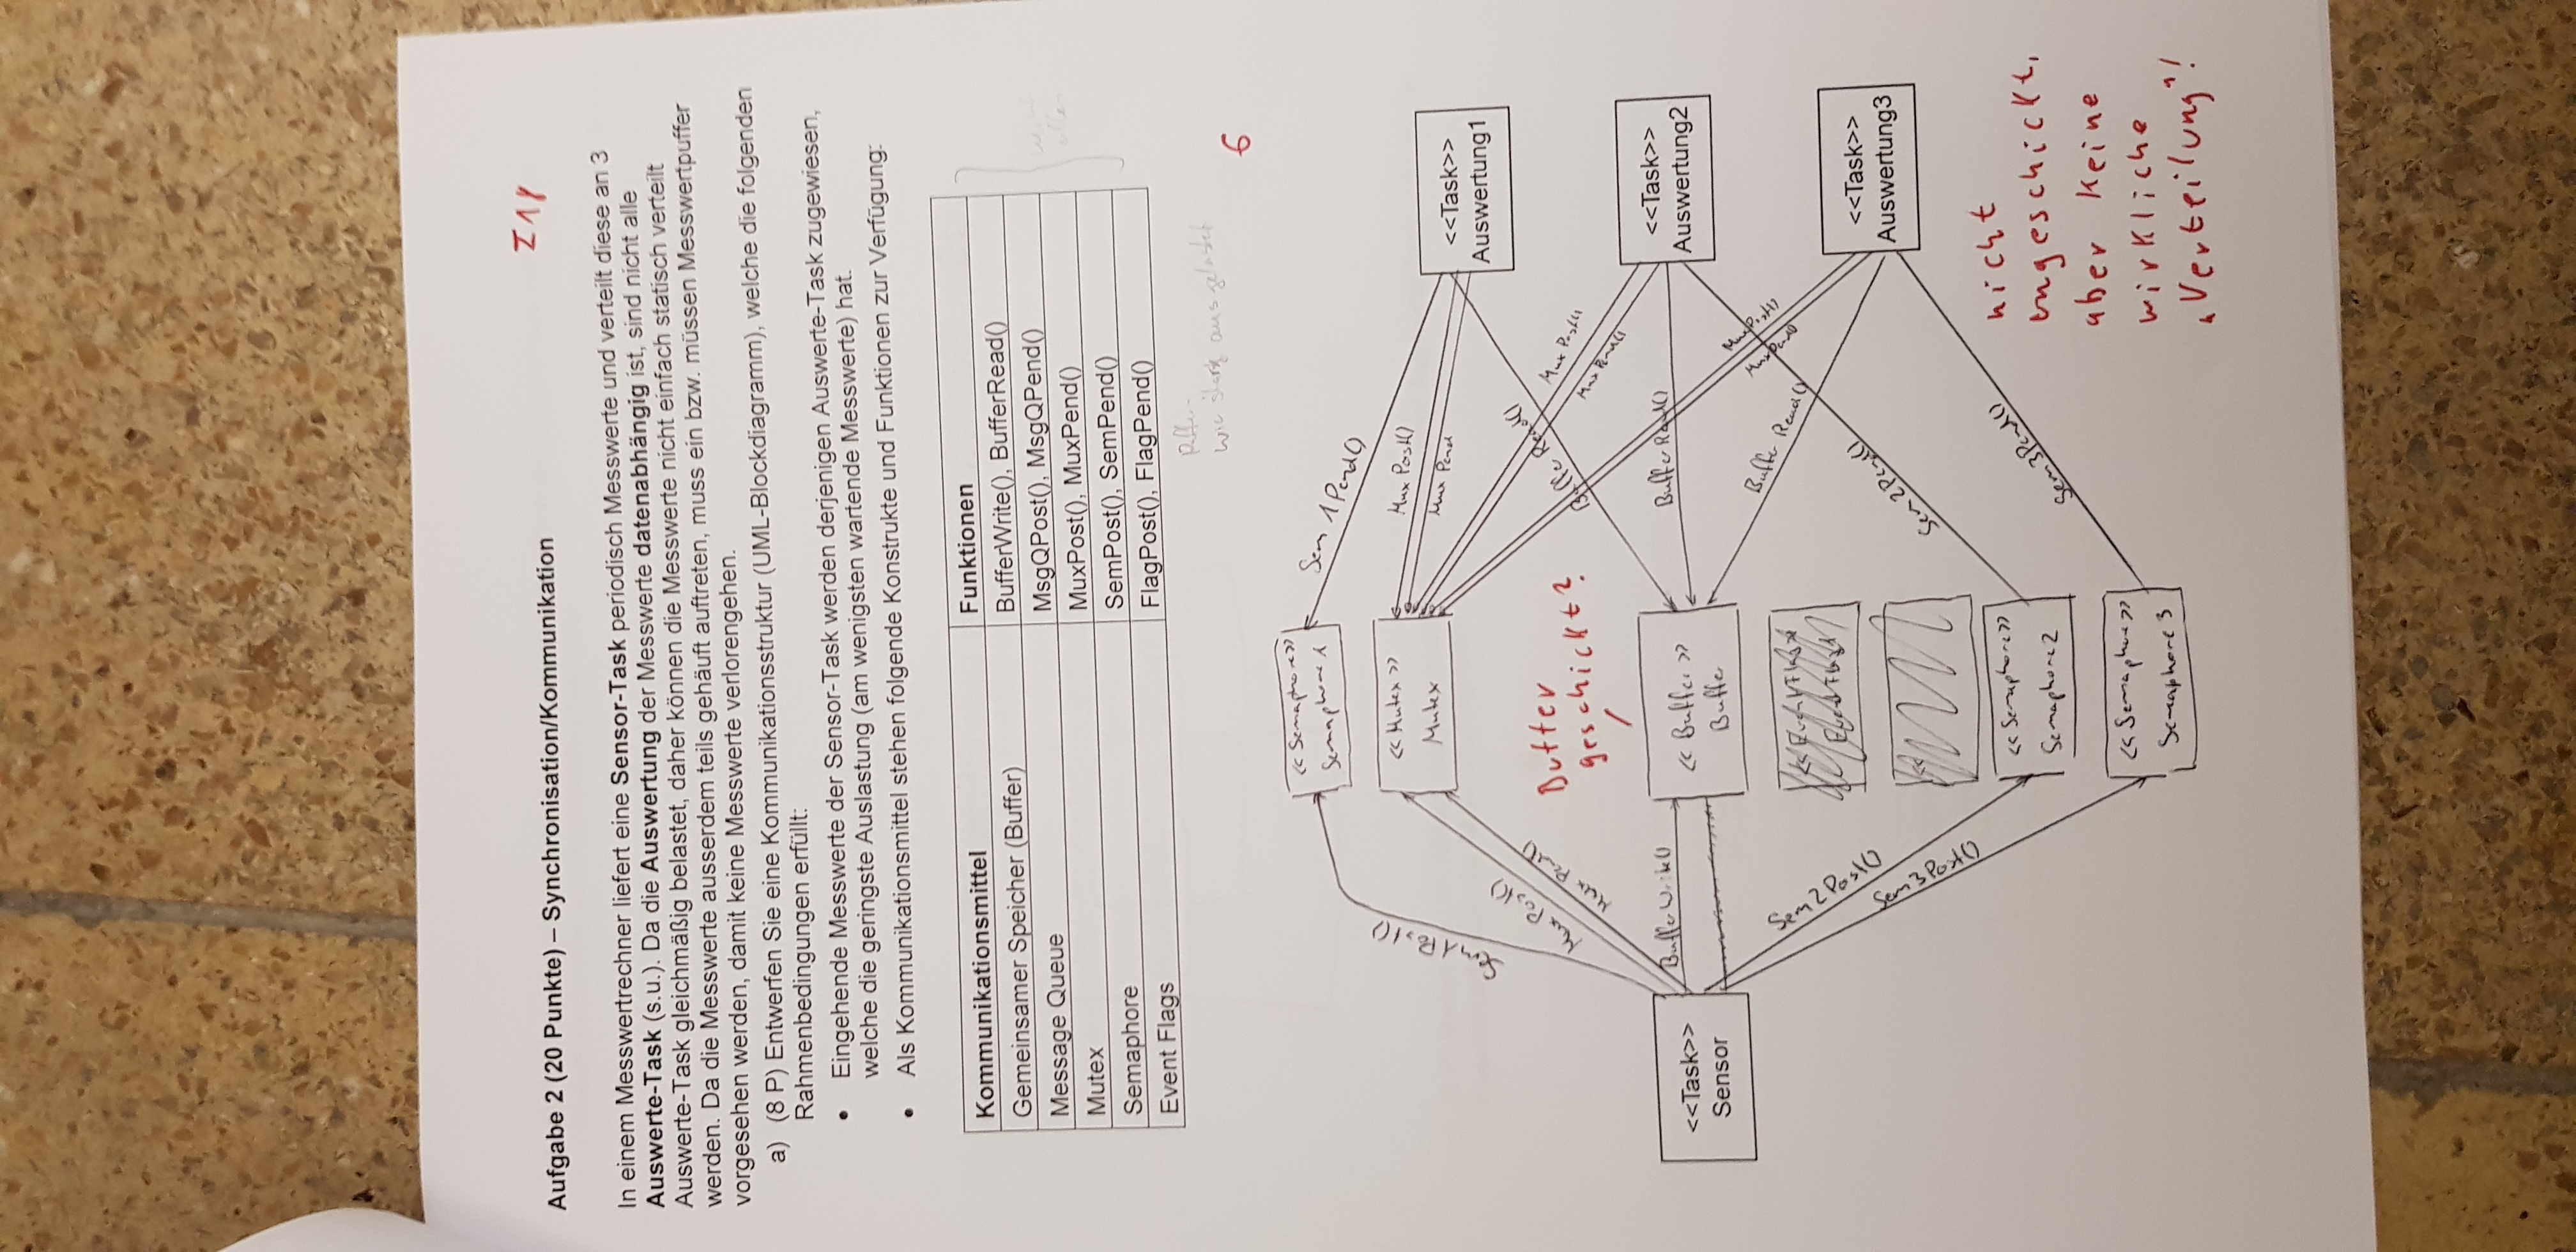 Σ18
Aufgabe 2 (20 Punkte) – Synchronisation/Kommunikation
In einem Messwertrechner liefert eine Sensor-Task periodisch Messwerte und verteilt diese an 3
Auswerte-Task (s.u.). Da die Auswertung der Messwerte datenabhängig ist, sind nicht alle
Auswerte-Task gleichmäßig belastet, daher können die Messwerte nicht einfach statisch verteilt
werden. Da die Messwerte ausserdem teils gehäuft auftreten, muss ein bzw. müssen Messwertpuffer
vorgesehen werden, damit keine Messwerte verlorengehen.
a) (8 P) Entwerfen Sie eine Kommunikationsstruktur (UML-Blockdiagramm), welche die folgenden
Rahmenbedingungen erfüllt:
• Eingehende Messwerte der Sensor-Task werden derjenigen Auswerte-Task zugewiesen,
welche die geringste Auslastung (am wenigsten wartende Messwerte) hat.
• Als Kommunikationsmittel stehen folgende Konstrukte und Funktionen zur Verfügung:
Kommunikationsmittel Funktionen
Gemeinsamer Speicher (Buffer) BufferWrite(), BufferRead()
Message Queue MsgQPost(), MsgQPend()
Mutex MuxPost(), MuxPend()
Semaphore SemPost(), SemPend()
Event Flags FlagPost(), FlagPend()
wie stark ausgelastet
6
<<Semaphore>>
Semaphore 1
Sem 1 Pend()
Sem 1 Post()
<<Mutex>>
Mutex
Mux Post()
Mux Pend
<<Task>>
Auswertung1
Mux Post()
Mux Pend()
Buffer
geschickt?
Buffer Read()
Mux Post()
Mux Pend()
<<Task>>
Sensor
BufferWrite()
<<Buffer>>
Buffer
Buffer Read()
<<Task>>
Auswertung2
Mux Post()
Mux Pend()
Buffer Read()
<<Event Flag>>
Sem 2 Post()
Sem 3 Post()
Sem 2 Pend()
<<Task>>
Auswertung3
<<
<<Semaphore>>
Semaphore 2
Sem 3 Pend()
<<Semaphore>>
Semaphore 3
nicht
ungeschickt,
aber keine
wirkliche
"Verteilung"!